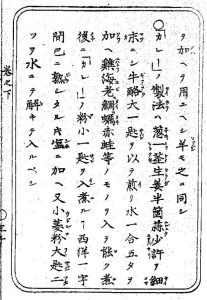 ヲ加ヘテ用ユヘシ羊モ之ニ同シ
○「カレー」ノ製法ハ葱一莖生姜半箇蒜少許ヲ細
末ニシ牛酪大一匙ヲ以テ煎リ水一合五勺ヲ
加ヘ鶏海老鯛蠣赤蛙等ノモノヲ入テ能ク煮
後ニ「カレー」ノ粉小一匙ヲ入煮ル西洋一字
間已ニ熟シタルトキ塩ニ加ヘ又小麥粉大匙二
ツヲ水ニテ解キテ入ルヘシ
卷之下